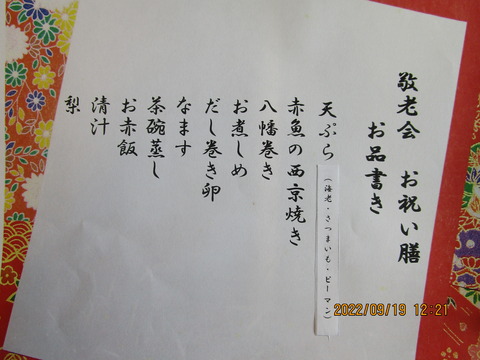 敬老会　お祝い膳
お品書き
天ぷら（海老・さつまいも・ピーマン）
赤魚の西京焼き
八幡巻き
お煮しめ
だし巻き卵
なます
茶碗蒸し
お赤飯
清汁
梨
2022/09/19 12:21